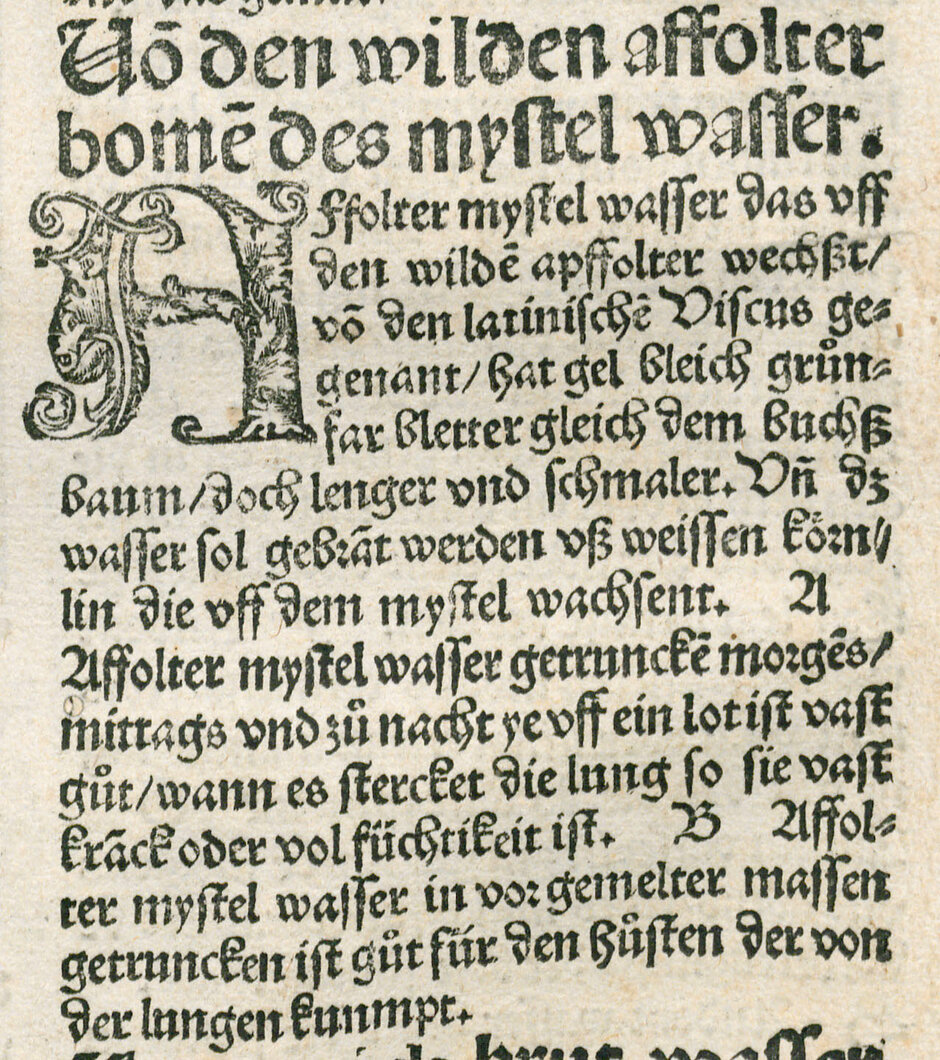 Uō den wilden affolter
bomē des mystel wasser.
Affolter mystel wasser das vff
den wildē apffolter wechßt/
vō den latinischē Viscus ge⸗
genant/ hat gel bleich grůn⸗
far bletter gleich dem buchß
baum/ doch lenger vnd schmaler. Vn̄ dz
wasser sol gebrāt werden vß weissen körn//
lin die vff dem mystel wachsent. A
Affolter mystel wasser getrunckē morgēs/
mittags vnd zů nacht ye vff ein lot ist vast
gůt/ wann es stercket die lung so sie vast
krāck oder vol füchtikeit ist. B Affol⸗
ter mystel wasser in vor gemelter massen
getruncken ist gůt für den hůsten der von
der lungen kunmpt.